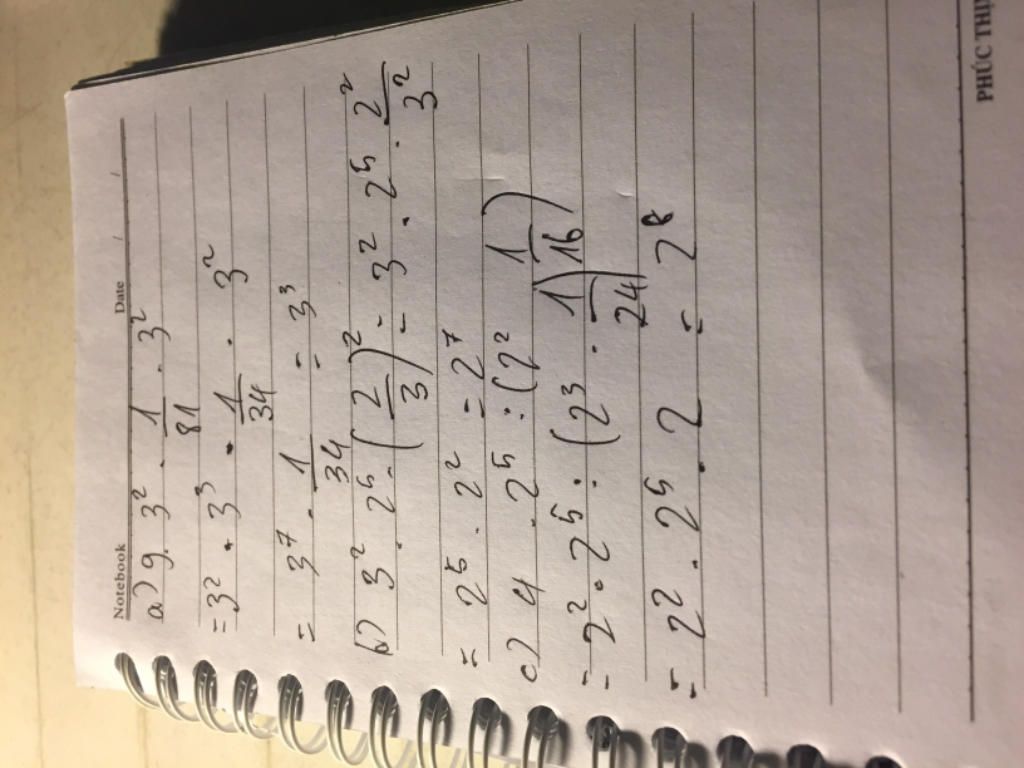 Notebook Date / /
a) 9 . 3² . 1/81 . 3²
= 3² . 3³ . 1/34 . 3²
= 3⁷ . 1/34 = 3³
b) 3² . 2⁵ . (2/3)² = 3² . 2⁵ . 2²/3²
= 2⁵ . 2² = 2⁷
c) 4 . 2⁵ : (2² 1/16)
= 2² . 2⁵ : (2³ . 1/24)
= 2² . 2⁵ . 2 = 2⁸